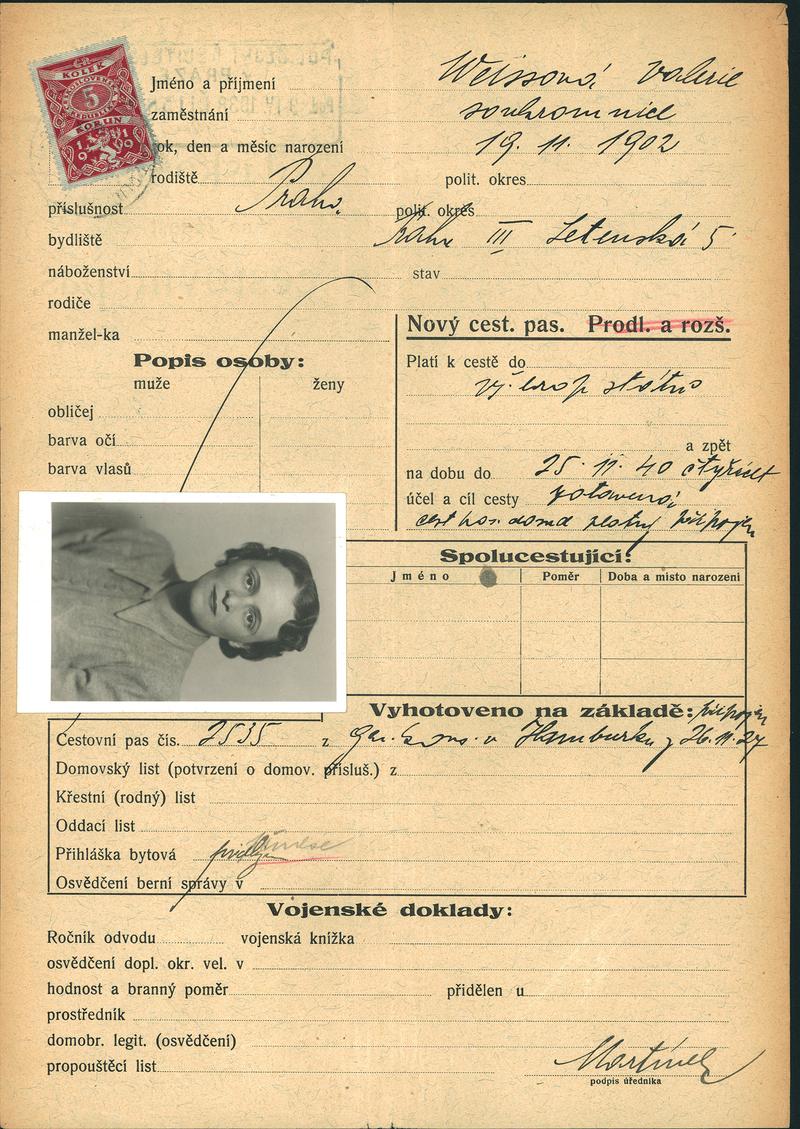 KOLEK
ČESKOSLOVENSKÁ
REPUBLIKA
5
KORUN
1919
Jméno a příjmení Weissová Valerie
zaměstnání soukromnice
rok, den a měsíc narození 19. 11. 1902
rodiště polit. okres
příslušnost Praha polit. okres
bydliště Praha III Letenská 5
náboženství stav
rodiče
manžel-ka
Popis osoby:
muže ženy
obličej
barva očí
barva vlasů
Nový cest. pas. Prodl. a rozš.
Platí k cestě do
vš. evrop. států
a zpět
na dobu do 25. 11. 40 čtyřicet
účel a cíl cesty zotavená
cest. pas
Spolucestující:
Jméno Poměr Doba a místo narození
Vyhotoveno na základě: připojen
Cestovní pas čís. 2535 z gen. kons. v Hamburku z 26. 11. 27
Domovský list (potvrzení o domov. přísluš.) z
Křestní (rodný) list
Oddací list
Přihláška bytová
Osvědčení berní správy v
Vojenské doklady:
Ročník odvodu vojenská knížka
osvědčení dopl. okr. vel. v
hodnost a branný poměr přidělen u
prostředník
domobr. legit. (osvědčení)
propouštěcí list
Martínek
podpis úředníka